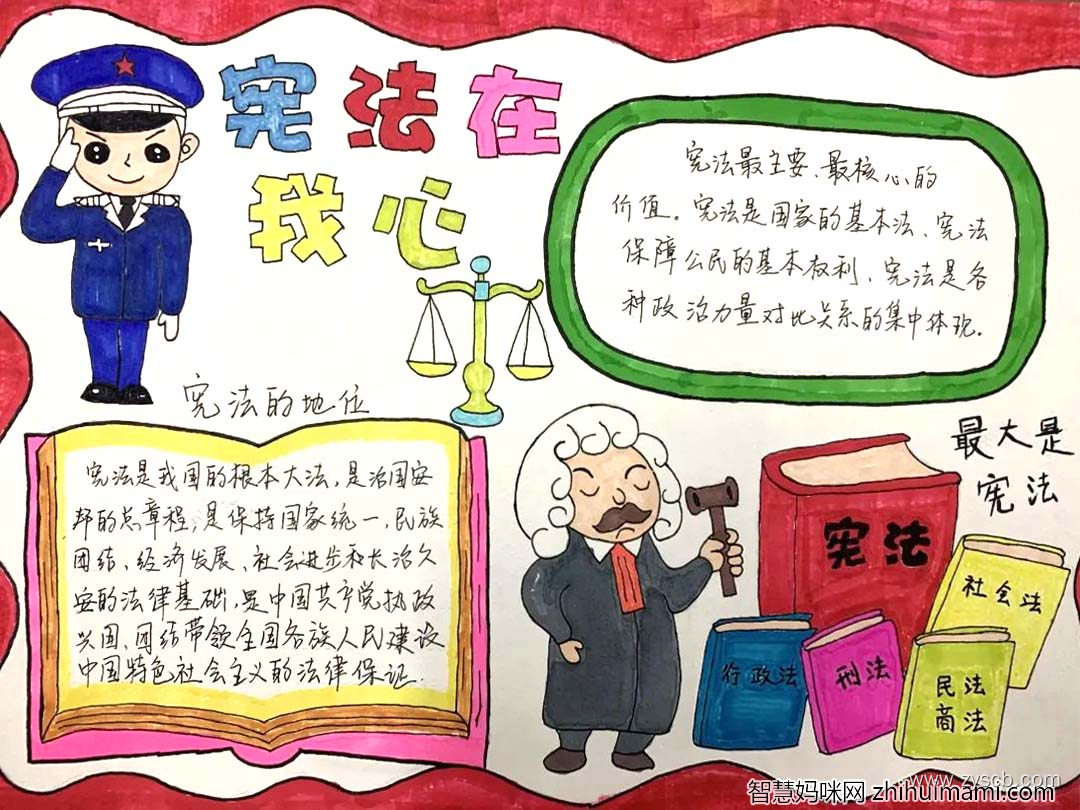 宪法在
我心
宪法最主要、最核心的
价值。宪法是国家的基本法、宪法
保障公民的基本权利、宪法是各
种政治力量对比关系的集中体现。
宪法的地位
宪法是我国的根本大法，是治国安
邦的总章程，是保持国家统一，民族
团结、经济发展、社会进步和长治久
安的法律基础，是中国共产党执政
兴国、团结带领全国各族人民建设
中国特色社会主义的法律保证.
最大是
宪法
宪法
社会法
行政法
刑法
民法
商法
www.zyscb.com
智慧妈咪网 zhihuimami.com